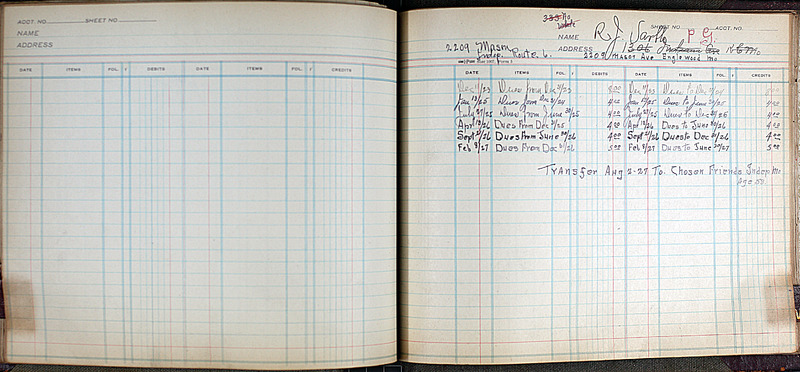 ACCT. NO. SHEET NO.
NAME
ADDRESS
DATE ITEMS FOL. DEBITS DATE ITEMS FOL. CREDITS
333 No
White
SHEET NO. ACCT. NO.
NAME R. J. P G.
2209 Mason
ADDRESS 1306 K C Mo
Indep. Route 6. 2209 Mason Ave Englewood Mo
DATE ITEMS FOL. DEBITS DATE ITEMS FOL. CREDITS
Dues from Dec Dues to Dec
Jan 13/25 Dues from Dec 31/24 4.00 Jan 13/25 Dues to June 4.00
July 27/25 Dues from June 30/25 4.00 July 27/25 Dues to Dec 4.00
Apr 13/26 Dues From Dec 31/25 4.00 Apr 13/26 Dues to June 30/26 4.00
Sept 5/26 Dues From June 30/26 4.00 Sept 5/26 Dues to Dec 31/26 4.00
Feb 8/27 Dues From Dec 31/26 5.00 Feb 8/27 Dues to June 30/27 5.00
Transfer Aug 2-27 To Chosen Friends Indep Mo
Age 50